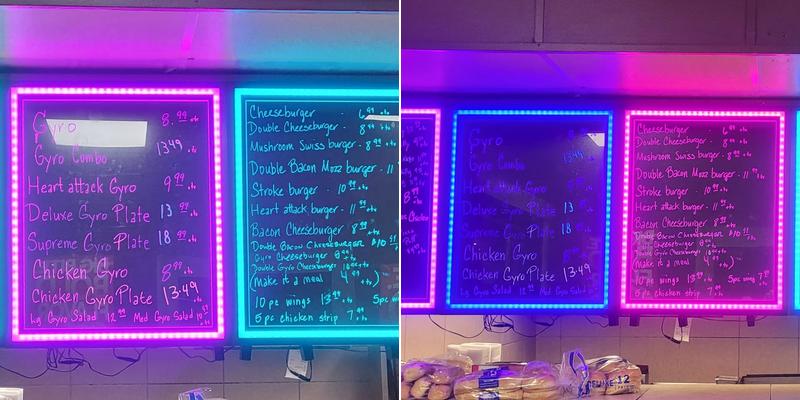 Gyro 8.99 +tx
Gyro Combo 13.49 +tx
Heart attack Gyro 9.99 +tx
Deluxe Gyro Plate 13 .99 +tx
Supreme Gyro Plate 18 .99 +tx
Chicken Gyro 8.99 +tx
Chicken Gyro Plate 13.49 +tx
Lg Gyro Salad 12.99 Med Gyro Salad 10
Cheeseburger - 6.99 +tx
Double Cheeseburger - 8.99 +tx
Mushroom Swiss burger - 9
Double Bacon Mozz burger - 11
Stroke burger - 10
Heart attack burger - 11 +tx
Bacon Cheeseburger 8.99 +tx
Double Bacon Cheeseburger $10
Gyro Cheeseburger 8
Double Gyro Cheeseburger 10
(Make it a meal 4.49 +tx)
10 pc wings 13.99 +tx 5pc
5 pc chicken strip 7.99 +tx
Gyro
Gyro Combo 13.49
Heart attack Gyro
Deluxe Gyro Plate 13
Supreme Gyro Plate 18
Chicken Gyro
Chicken Gyro Plate 13.49
Lg Gyro Salad Med Gyro Salad
Cheeseburger 6.99 +tx
Double Cheeseburger - 8.99 +tx
Mushroom Swiss burger -
Double Bacon Mozz burger - 11
Stroke burger - 10
Heart attack burger - 11 +tx
Bacon Cheeseburger 8.99 +tx
Double Bacon Cheeseburger $10
Cheeseburger
Double Gyro Cheeseburger
(Make it a meal 4.49 +tx)
10 pc wings 13.99 +tx 5pc wing 7
5 pc chicken strip 7.99 +tx
DELUXE 12